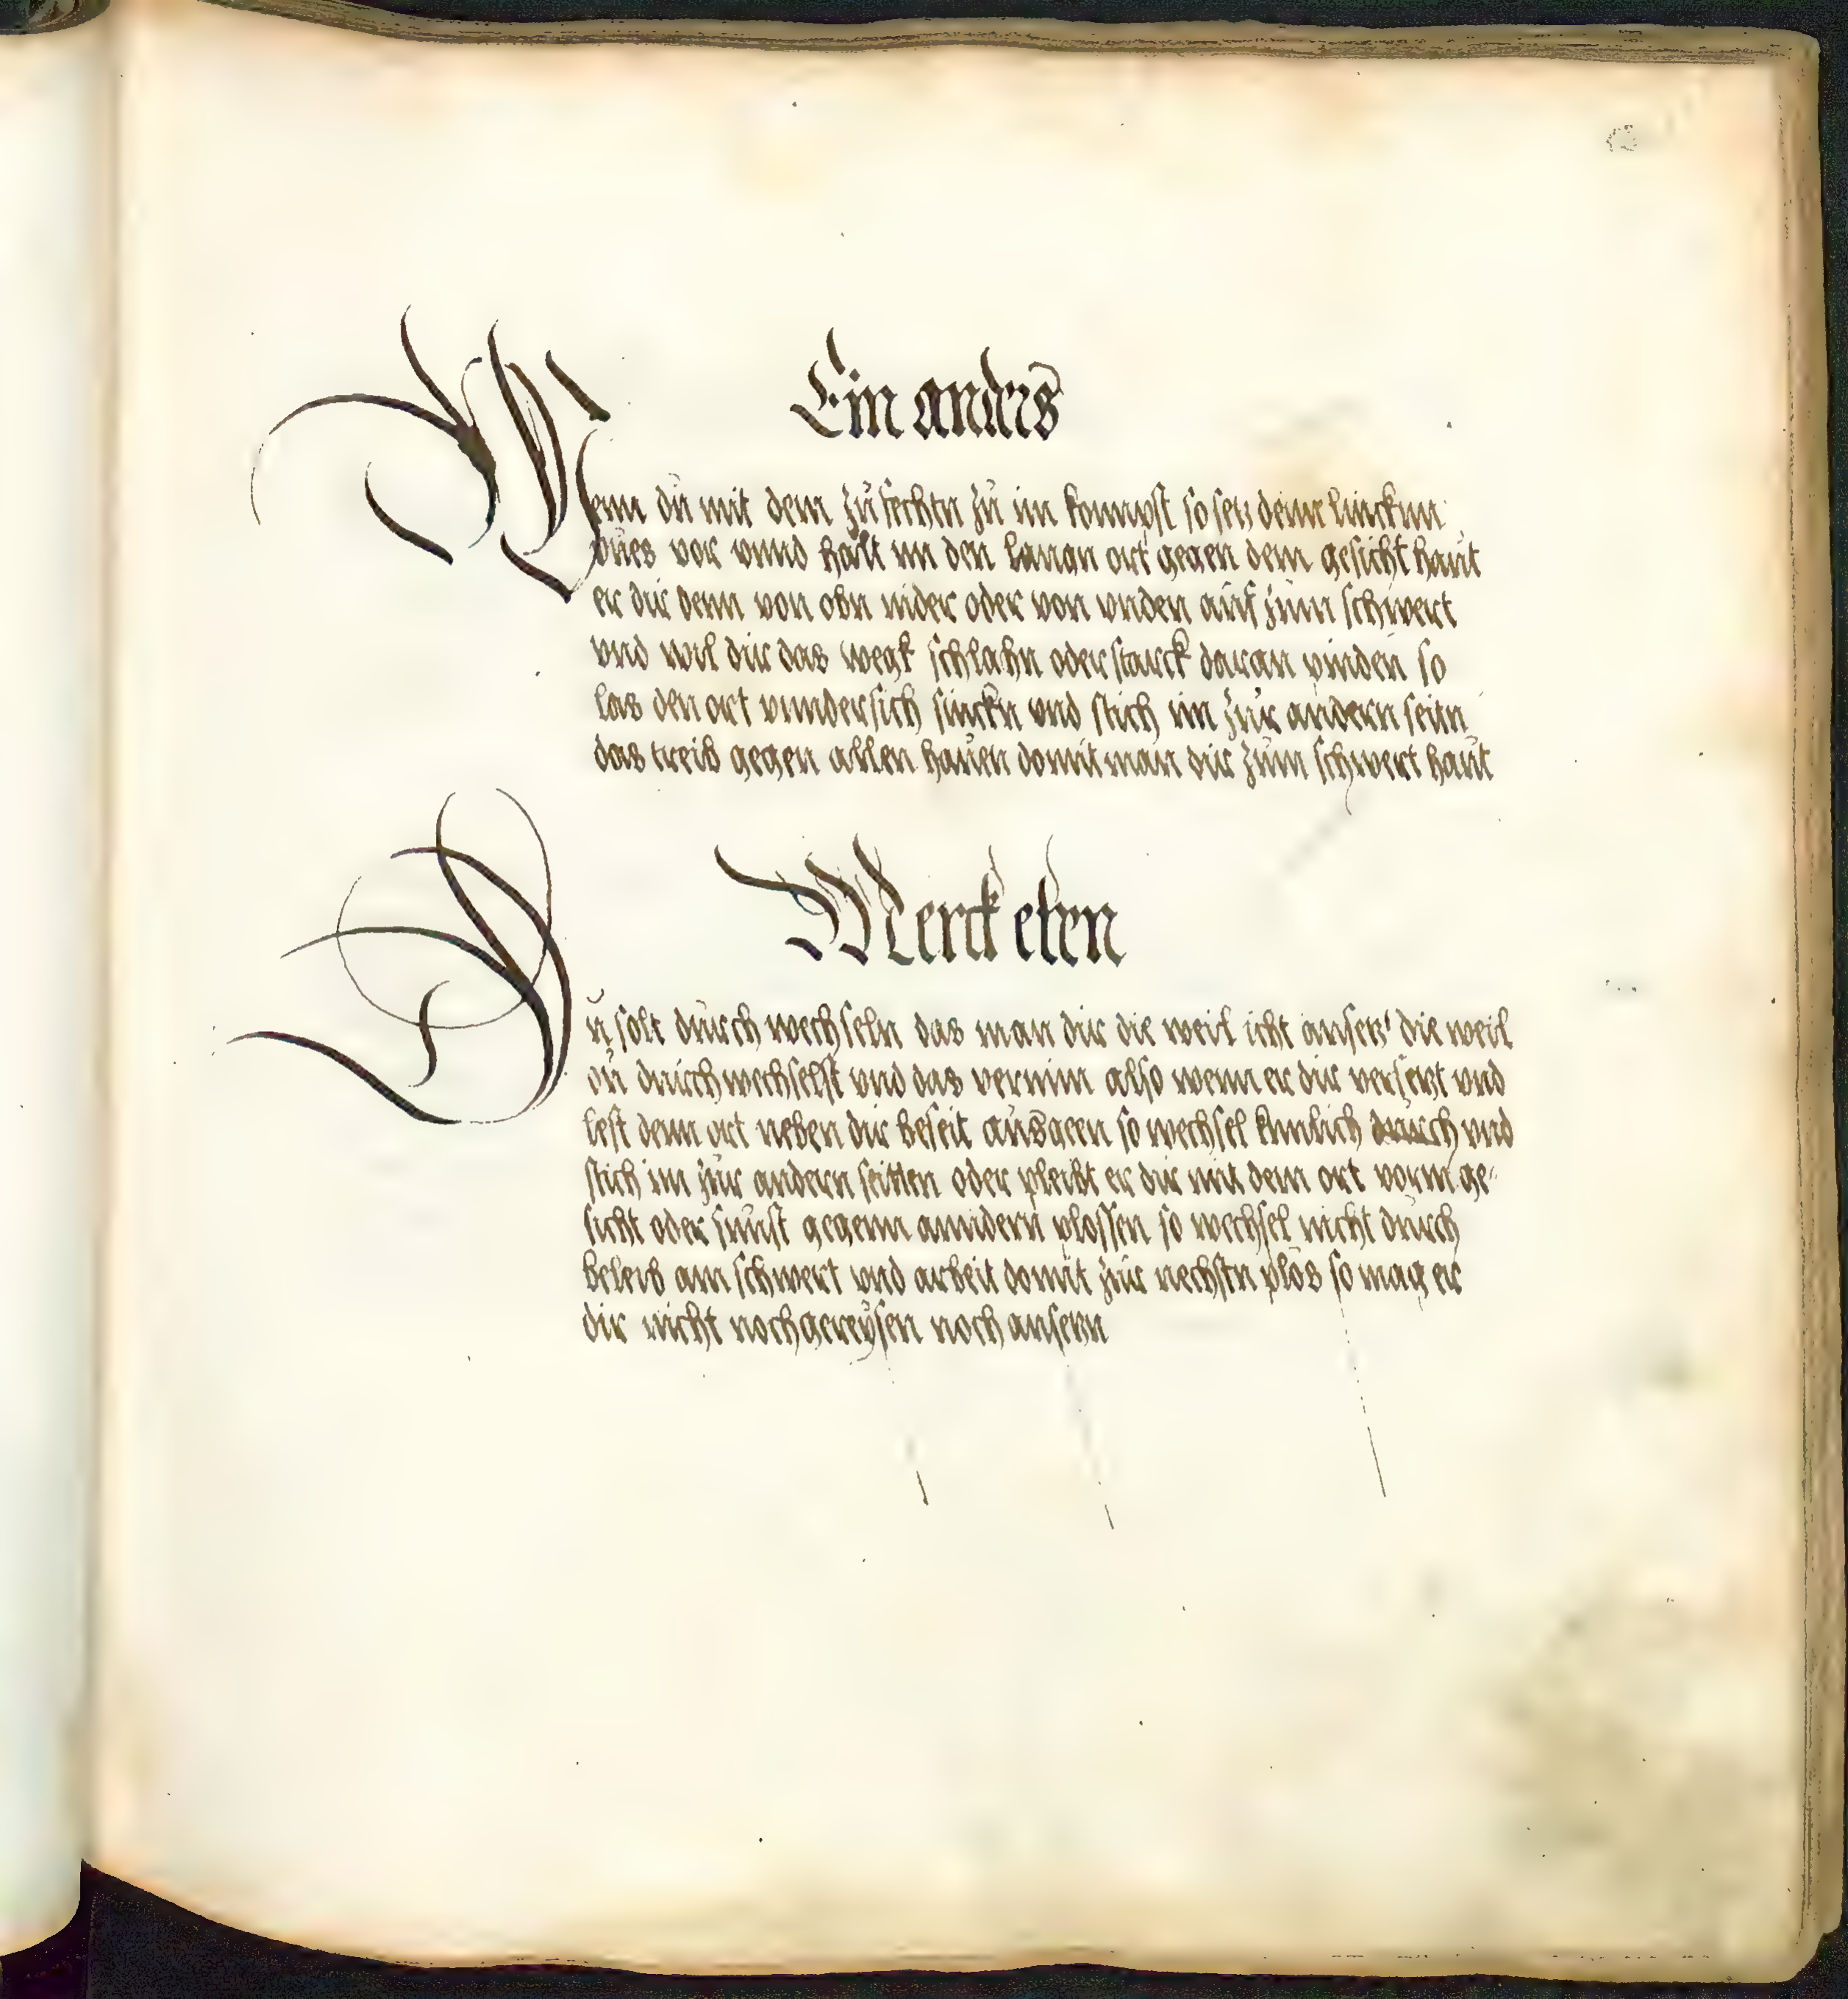 Ein anders
Wenn du mit dem zu fechtn zu im kommpst so setz deine linckmn
vues vor vnnd halt im den langn ort gegen dem gesicht haut
er dir denn von obn nider oder von vnden auf zum schwert
vnd wil dir das wegk schlahn oder starck daran pinden so
las den ort vnndersich sinckn vnd stich im zur andern seitn
das treib gegen allen hauen domit man dir zum schwert haut
Merck eben
Du solt durch wechseln das man dir die weil icht ansetz die weil
du durchwechselst vnd das vernim also wenn er dir versetzt vnd
lest denn ort neben dir beseit ausgeen so wechsel künlich durch vnd
stich im zur andern seitten oder pleibt er dir mit dem ort vorm ge-
sicht oder sunst gegenn anndern plossen so wechsel nicht durch
beleib am schwert vnd arbeit domit zur nechstn plos so mag er
dir nicht nochgereysen noch ansetzn